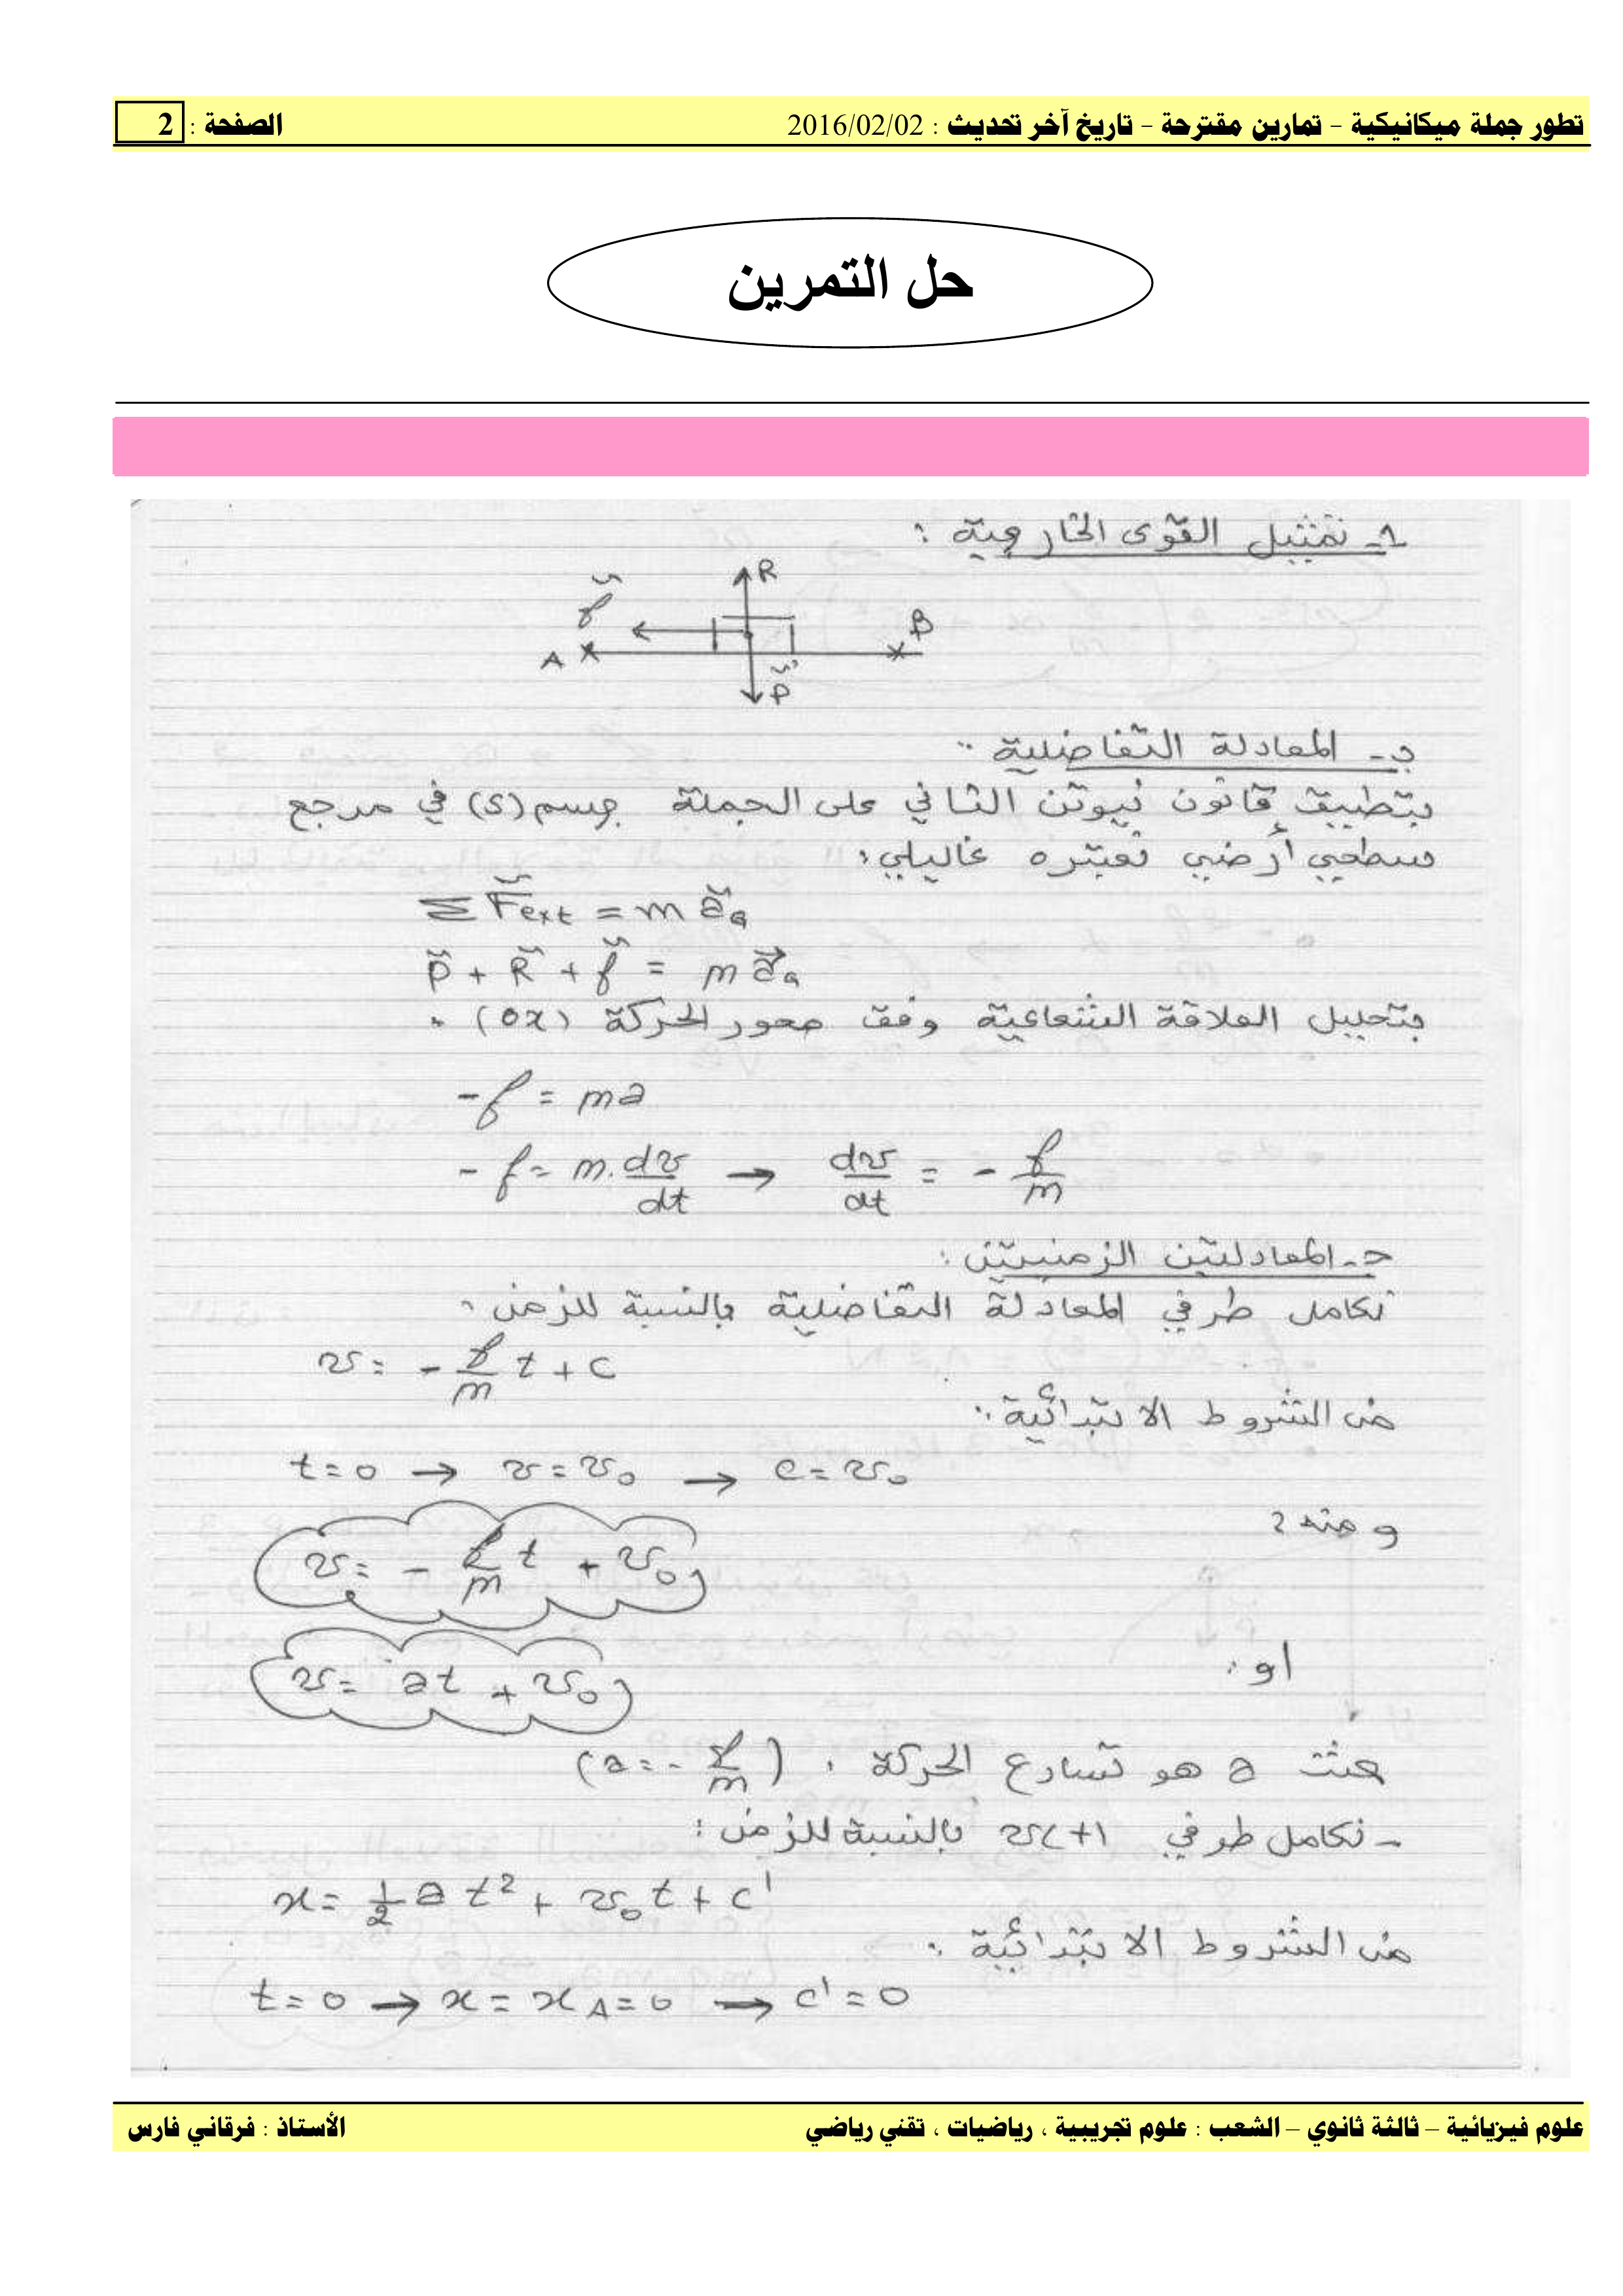 تطور جملة ميكانيكية - تمارين مقترحة - تاريخ آخر تحديث : 2016/02/02 الصفحة : 2
حل التمرين
1- تمثيل القوى الخارجية :
R
f
B
A
P
ب- المعادلة التفاضلية :
بتطبيق قانون نيوتن الثاني على الجملة جسم (S) في مرجع
سطحي أرضي نعتبره غاليلي :
Σ F⃗ext = m a⃗G
P⃗ + R⃗ + f⃗ = m a⃗G
بتحليل العلاقة الشعاعية وفق محور الحركة (ox) :
-f = ma
-f = m.dv/dt → dv/dt = - f/m
ج- المعادلتين الزمنيتين :
نكامل طرفي المعادلة التفاضلية بالنسبة للزمن :
v = - f/m t + c
من الشروط الابتدائية :
t = 0 → v = v₀ → c = v₀
ومنه :
v = - f/m t + v₀
أو :
v = at + v₀
حيث a هو تسارع الحركة . (a = - f/m)
- نكامل طرفي v(t) بالنسبة للزمن :
x = 1/2 a t² + v₀ t + c'
من الشروط الابتدائية :
t = 0 → x = xA = 0 → c' = 0
علوم فيزيائية – ثالثة ثانوي – الشعب : علوم تجريبية ، رياضيات ، تقني رياضي الأستاذ : فرقاني فارس